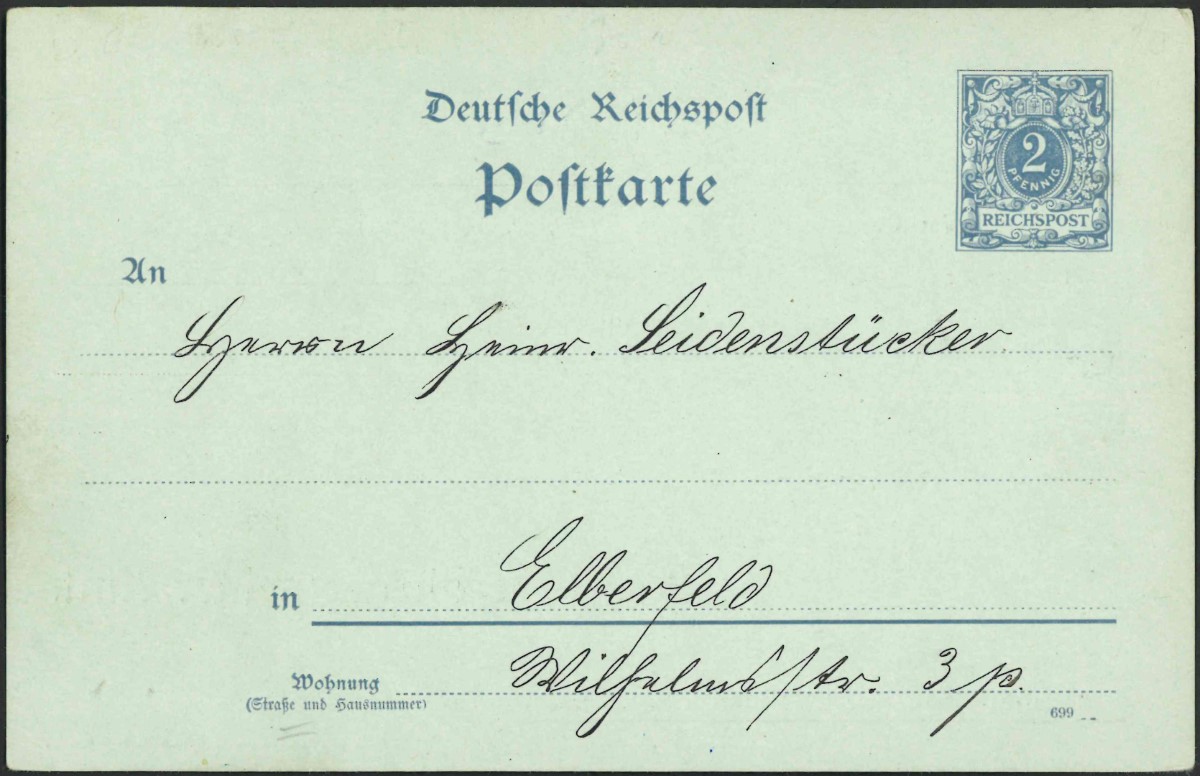 Deutsche Reichspost
Postkarte
2
PFENNIG
REICHSPOST
An
Herrn Heinr. Seidenstücker
in Elberfeld
Wohnung Wilhelmsstr. 3 p.
(Straße und Hausnummer)
699